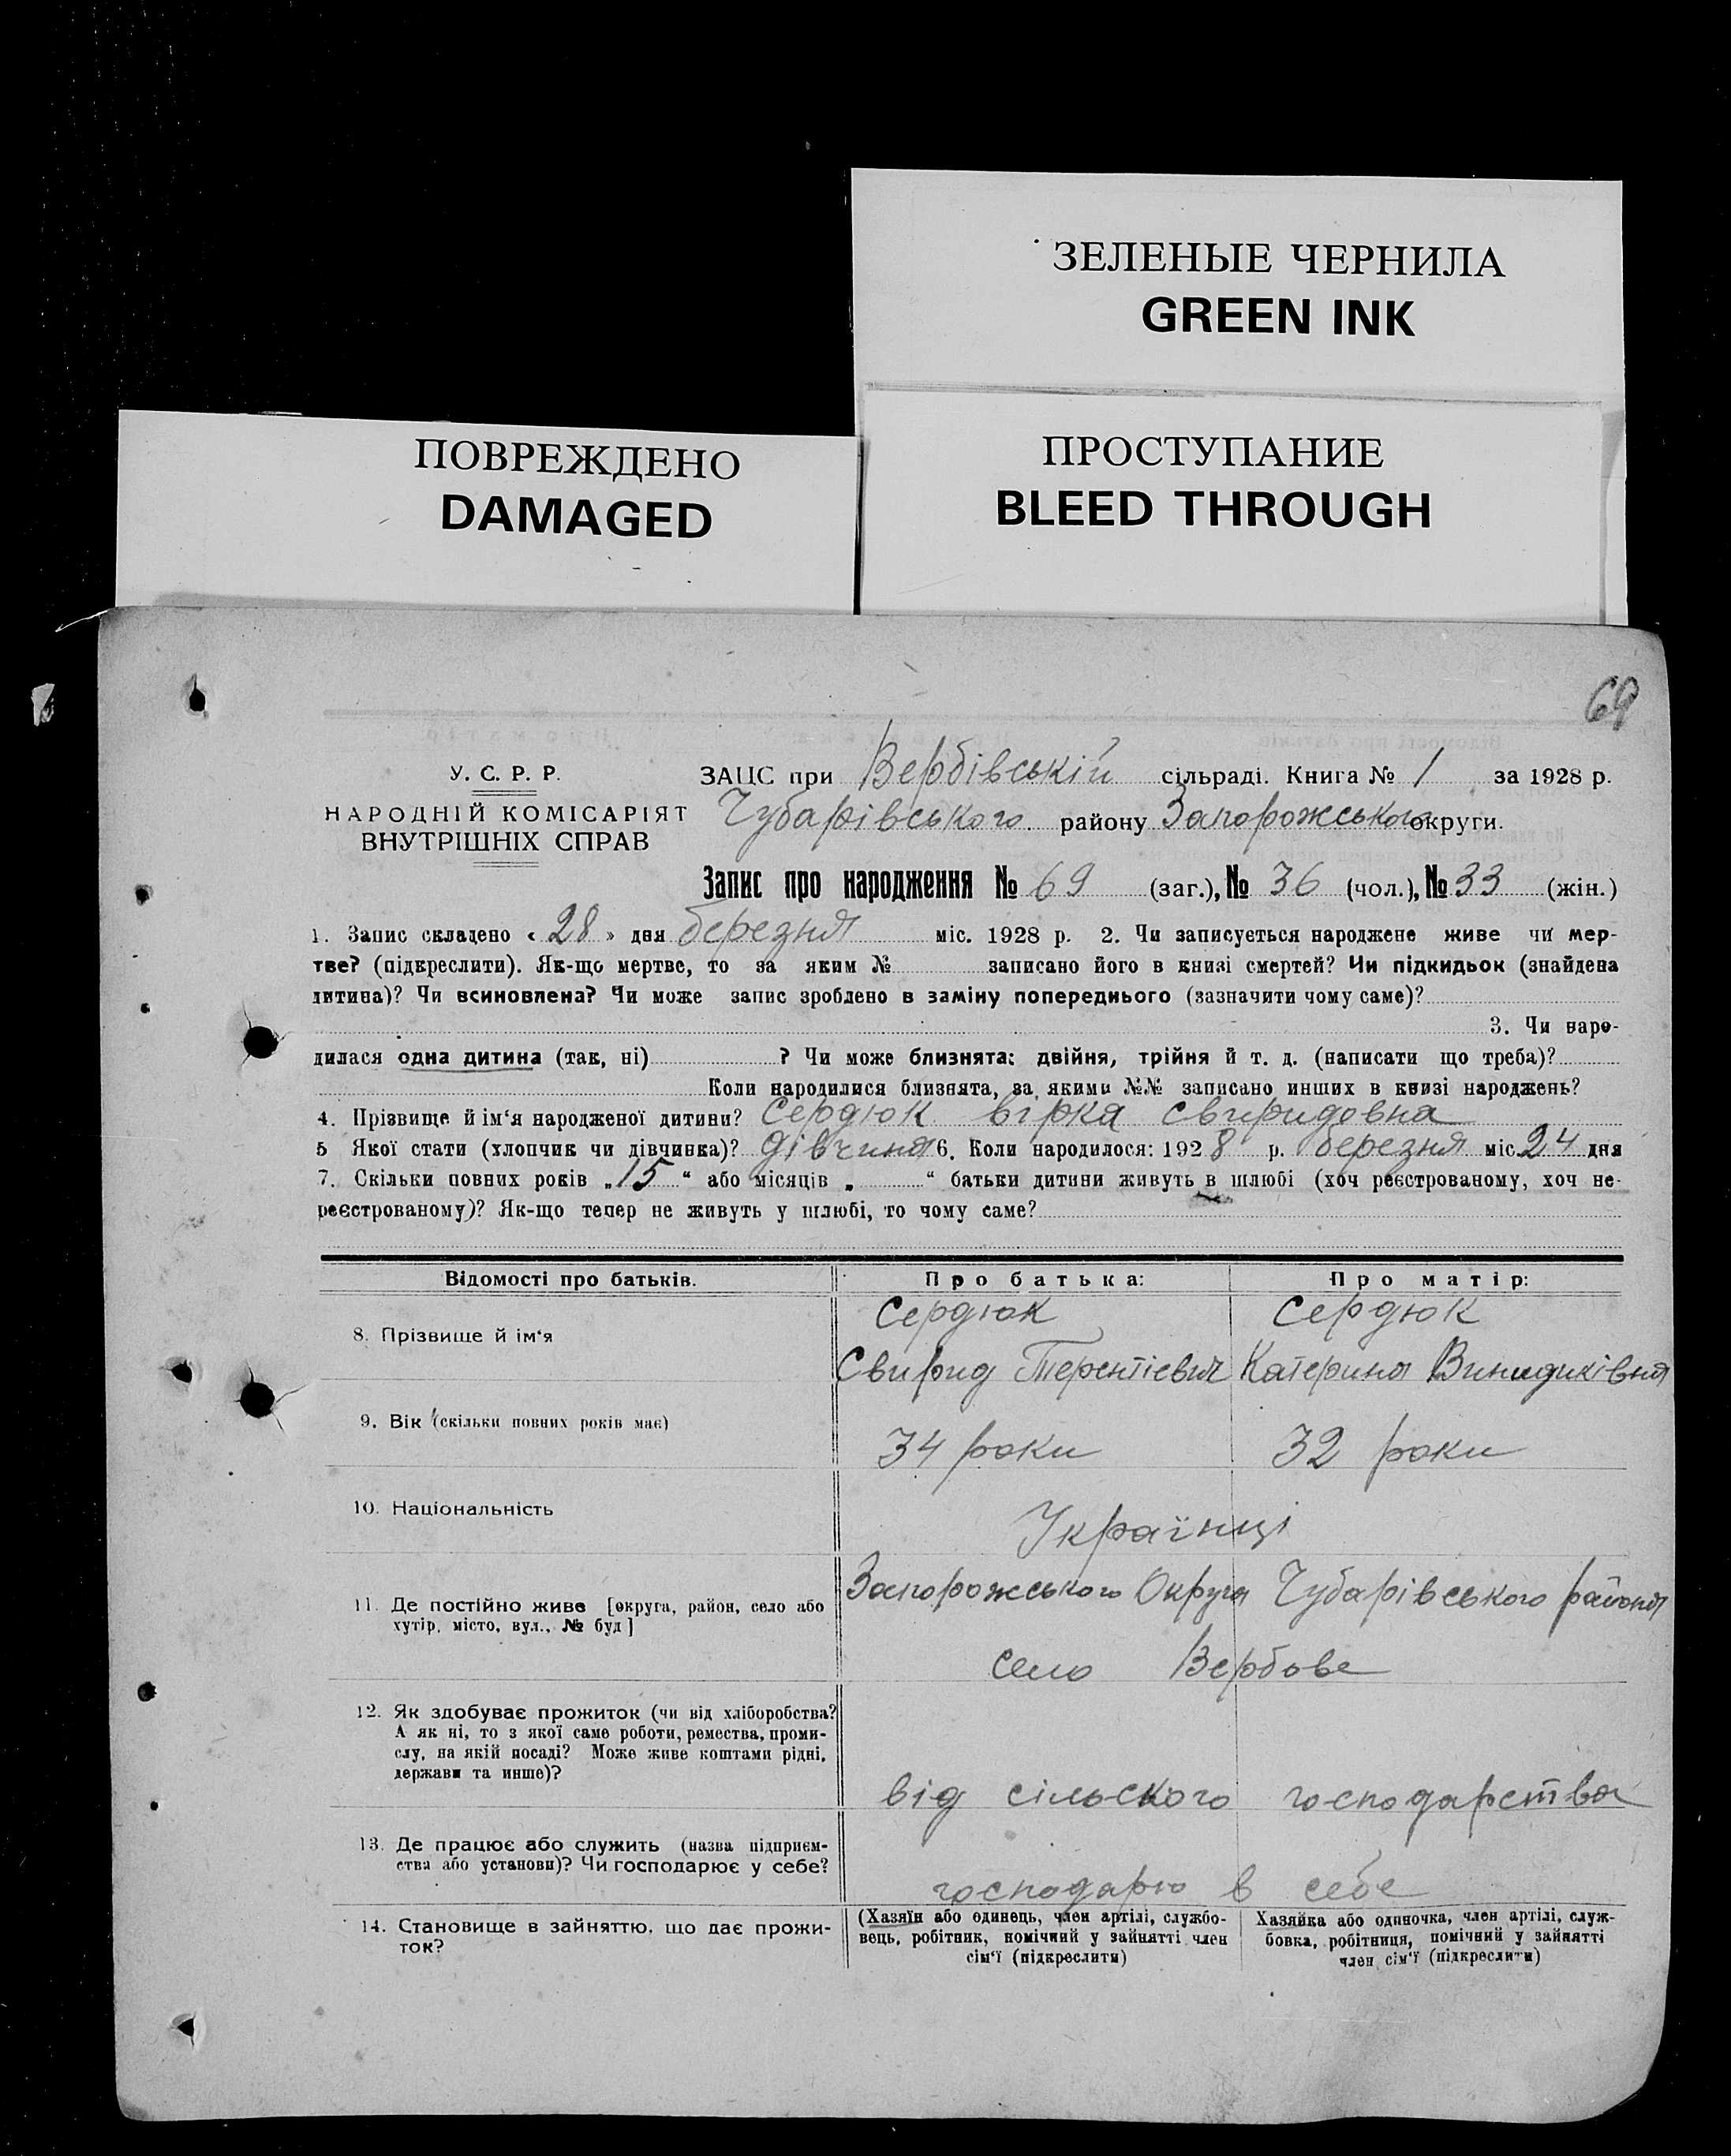 ЗЕЛЕНЫЕ ЧЕРНИЛА
GREEN INK
ПОВРЕЖДЕНО
DAMAGED
ПРОСТУПАНИЕ
BLEED THROUGH
69
У. С. Р. Р.
НАРОДНІЙ КОМІСАРІЯТ
ВНУТРІШНІХ СПРАВ
ЗАЦС при Вербівській сільраді. Книга № 1 за 1928 р.
Чубарівського району Запорожського округи.
Запис про народження № 69 (заг.), № 36 (чол.), № 33 (жін.)
1. Запис складено « 28 » дня березня міс. 1928 р. 2. Чи записується народжене живе чи мер-
тве? (підкреслити). Як-що мертве, то за яким № записано його в книзі смертей? Чи підкидьок (знайдена
дитина)? Чи всиновлена? Чи може запис зроблено в заміну попереднього (зазначити чому саме)?
3. Чи наро-
дилася одна дитина (так, ні) ? Чи може близнята: двійня, трійня й т. д. (написати що треба)?
Коли народилися близнята, за якими №№ записано инших в книзі народжень?
4. Прізвище й ім‘я народженої дитини? Сердюк вірка свиридовна
5 Якої стати (хлопчик чи дівчинка)? дівчиня 6. Коли народилося: 1928 р. березня міс. 24 дня
7. Скільки повних років „15“ або місяців „ “ батьки дитини живуть в шлюбі (хоч реєстрованому, хоч не-
реєстрованому)? Як-що тепер не живуть у шлюбі, то чому саме?
Відомості про батьків. Про батька: Про матір:
8. Прізвище й ім‘я
Сердюк Сердюк
Свирид Терентіевич Катерина
9. Вік (скільки повних років має)
34 роки 32 роки
10. Національність
Українці
11. Де постійно живе [округа, район, село або
хутір, місто, вул., № буд]
Запорожського Округа Чубарівського района
село Вербове
12. Як здобуває прожиток (чи від хліборобства?
А як ні, то з якої саме роботи, ремества, проми-
слу, на якій посаді? Може живе коштами рідні,
держави та инше)?
від сільского господарства
13. Де працює або служить (назва підприєм-
ства або установи)? Чи господарює у себе?
господарю в себе
14. Становище в зайняттю, що дає прожи-
ток?
(Хазяїн або одинець, член артілі, службо-
вець, робітник, помічний у зайнятті член
сім‘ї (підкреслити)
Хазяйка або одиночка, член артілі, служ-
бовка, робітниця, помічний у зайнятті
член сім‘ї (підкреслити)